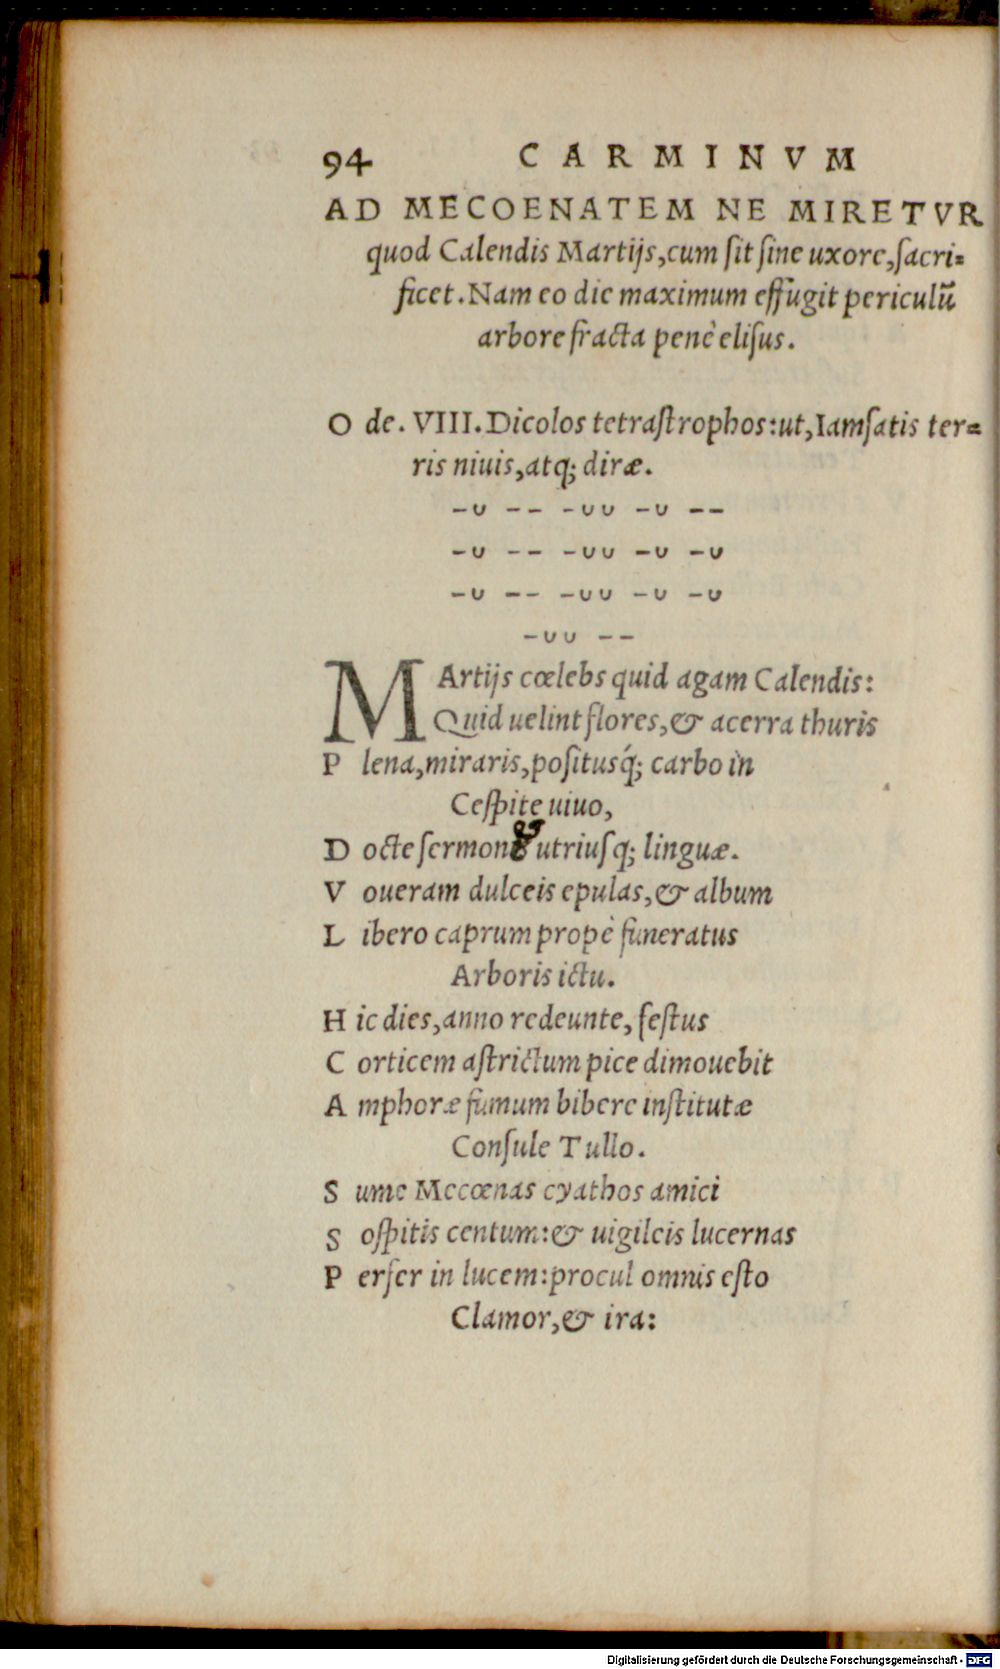 94 CARMINVM
AD MECOENATEM NE MIRETVR
quod Calendis Martijs,cum sit sine uxore,sacri=
ficet.Nam eo die maximum effugit periculũ
arbore fracta penè elisus.
O de. VIII. Dicolos tetrastrophos:ut,Iam satis ter=
ris niuis,atq; diræ.
–∪ –– –∪∪ –∪ ––
–∪ –– –∪∪ –∪ –∪
–∪ –– –∪∪ –∪ –∪
–∪∪ ––
MArtijs cœlebs quid agam Calendis:
Quid uelint flores,& acerra thuris
P lena,miraris,positusq́; carbo in
Cespite uiuo,
D octe sermones utriusq; linguæ.
V oueram dulceis epulas,& album
L ibero caprum propè funeratus
Arboris ictu.
H ic dies,anno redeunte,festus
C orticem astrictum pice dimouebit
A mphoræ fumum bibere institutæ
Consule Tullo.
S ume Mecœnas cyathos amici
S ospitis centum:& uigileis lucernas
P erfer in lucem:procul omnis esto
Clamor,& ira:
Digitalisierung gefördert durch die Deutsche Forschungsgemeinschaft - DFG